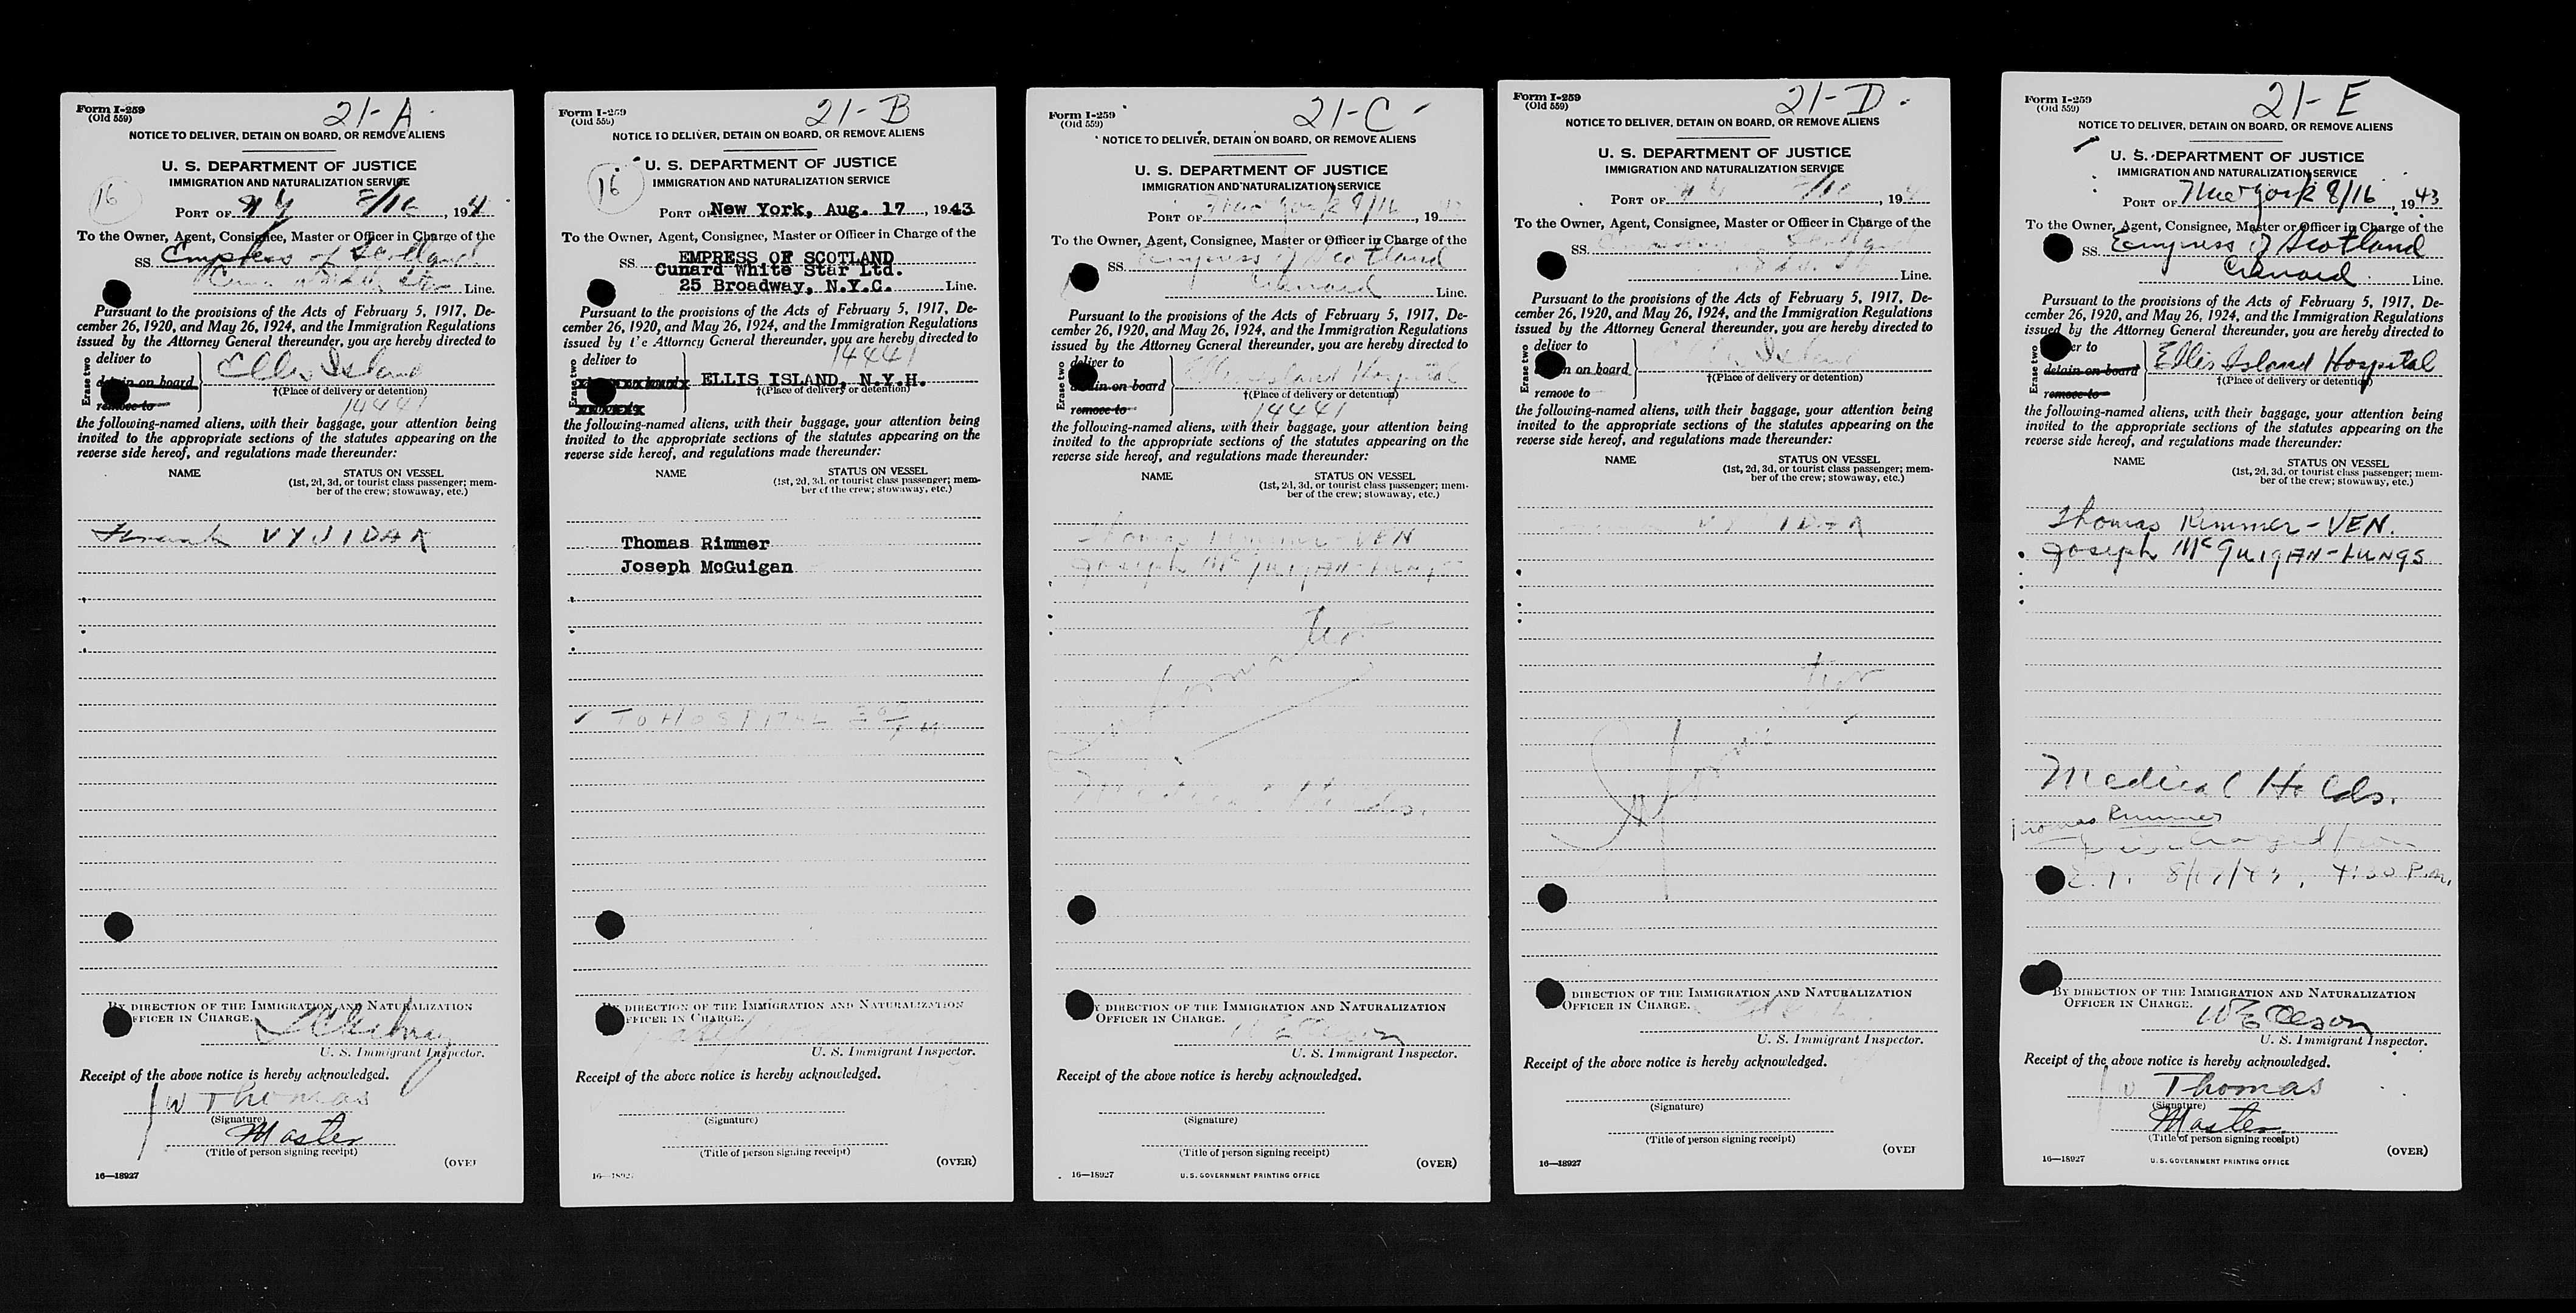 Form I-259
(Old 559)
21-A
NOTICE TO DELIVER, DETAIN ON BOARD, OR REMOVE ALIENS
U. S. DEPARTMENT OF JUSTICE
IMMIGRATION AND NATURALIZATION SERVICE
16
PORT OF N Y 8/16, 194
To the Owner, Agent, Consignee, Master or Officer in Charge of the
SS. Empress of Scotland
Line.
Pursuant to the provisions of the Acts of February 5, 1917, De-
cember 26, 1920, and May 26, 1924, and the Immigration Regulations
issued by the Attorney General thereunder, you are hereby directed to
Erase two
deliver to
detain on board
remove to
Ellis Island
†(Place of delivery or detention)
14441
the following-named aliens, with their baggage, your attention being
invited to the appropriate sections of the statutes appearing on the
reverse side hereof, and regulations made thereunder:
NAME STATUS ON VESSEL
(1st, 2d, 3d, or tourist class passenger; mem-
ber of the crew; stowaway, etc.)
Frank VYJIDAK
BY DIRECTION OF THE IMMIGRATION AND NATURALIZATION
OFFICER IN CHARGE.
U. S. Immigrant Inspector.
Receipt of the above notice is hereby acknowledged.
W Thomas
(Signature)
Master
(Title of person signing receipt)
(OVE
16—18927
Form I-259
(Old 559)
21-B
NOTICE TO DELIVER, DETAIN ON BOARD, OR REMOVE ALIENS
U. S. DEPARTMENT OF JUSTICE
IMMIGRATION AND NATURALIZATION SERVICE
16
PORT OF New York, Aug. 17, 1943
To the Owner, Agent, Consignee, Master or Officer in Charge of the
SS. EMPRESS OF SCOTLAND
Cunard White Star Ltd.
25 Broadway, N.Y.C. Line.
Pursuant to the provisions of the Acts of February 5, 1917, De-
cember 26, 1920, and May 26, 1924, and the Immigration Regulations
issued by the Attorney General thereunder, you are hereby directed to
14441
Erase two
deliver to
ELLIS ISLAND, N.Y.H.
†(Place of delivery or detention)
the following-named aliens, with their baggage, your attention being
invited to the appropriate sections of the statutes appearing on the
reverse side hereof, and regulations made thereunder:
NAME STATUS ON VESSEL
(1st, 2d, 3d, or tourist class passenger; mem-
ber of the crew; stowaway, etc.)
Thomas Rimmer
Joseph McGuigan
✓ TO HOSPITAL
BY DIRECTION OF THE IMMIGRATION AND NATURALIZATION
OFFICER IN CHARGE.
U. S. Immigrant Inspector.
Receipt of the above notice is hereby acknowledged.
(Signature)
(Title of person signing receipt)
(OVER)
16—18927
Form I-259
(Old 559)
21-C
NOTICE TO DELIVER, DETAIN ON BOARD, OR REMOVE ALIENS
U. S. DEPARTMENT OF JUSTICE
IMMIGRATION AND NATURALIZATION SERVICE
PORT OF New York 8/16, 19
To the Owner, Agent, Consignee, Master or Officer in Charge of the
SS. Empress of Scotland
Cunard Line.
Pursuant to the provisions of the Acts of February 5, 1917, De-
cember 26, 1920, and May 26, 1924, and the Immigration Regulations
issued by the Attorney General thereunder, you are hereby directed to
Erase two
deliver to
detain on board
remove to
Ellis Island Hospital
†(Place of delivery or detention)
14441
the following-named aliens, with their baggage, your attention being
invited to the appropriate sections of the statutes appearing on the
reverse side hereof, and regulations made thereunder:
NAME STATUS ON VESSEL
(1st, 2d, 3d, or tourist class passenger; mem-
ber of the crew; stowaway, etc.)
Thomas Rimmer-VEN
Joseph McGuigan-Lungs
for
Information
Medical Holds.
BY DIRECTION OF THE IMMIGRATION AND NATURALIZATION
OFFICER IN CHARGE.
W E Oleson
U. S. Immigrant Inspector.
Receipt of the above notice is hereby acknowledged.
(Signature)
(Title of person signing receipt)
(OVER)
16—18927
U. S. GOVERNMENT PRINTING OFFICE
Form I-259
(Old 559)
21-D
NOTICE TO DELIVER, DETAIN ON BOARD, OR REMOVE ALIENS
U. S. DEPARTMENT OF JUSTICE
IMMIGRATION AND NATURALIZATION SERVICE
PORT OF N Y 8/16, 194
To the Owner, Agent, Consignee, Master or Officer in Charge of the
SS. Scotland
Line.
Pursuant to the provisions of the Acts of February 5, 1917, De-
cember 26, 1920, and May 26, 1924, and the Immigration Regulations
issued by the Attorney General thereunder, you are hereby directed to
Erase two
deliver to
detain on board
remove to
Ellis Island
†(Place of delivery or detention)
the following-named aliens, with their baggage, your attention being
invited to the appropriate sections of the statutes appearing on the
reverse side hereof, and regulations made thereunder:
NAME STATUS ON VESSEL
(1st, 2d, 3d, or tourist class passenger; mem-
ber of the crew; stowaway, etc.)
VYJIDAK
for
BY DIRECTION OF THE IMMIGRATION AND NATURALIZATION
OFFICER IN CHARGE.
U. S. Immigrant Inspector.
Receipt of the above notice is hereby acknowledged.
(Signature)
(Title of person signing receipt)
(OVE
16—18927
Form I-259
(Old 559)
21-E
NOTICE TO DELIVER, DETAIN ON BOARD, OR REMOVE ALIENS
U. S. DEPARTMENT OF JUSTICE
IMMIGRATION AND NATURALIZATION SERVICE
PORT OF New York 8/16, 1943
To the Owner, Agent, Consignee, Master or Officer in Charge of the
SS. Empress of Scotland
Cunard Line.
Pursuant to the provisions of the Acts of February 5, 1917, De-
cember 26, 1920, and May 26, 1924, and the Immigration Regulations
issued by the Attorney General thereunder, you are hereby directed to
Erase two
deliver to
detain on board
remove to
Ellis Island Hospital
†(Place of delivery or detention)
the following-named aliens, with their baggage, your attention being
invited to the appropriate sections of the statutes appearing on the
reverse side hereof, and regulations made thereunder:
NAME STATUS ON VESSEL
(1st, 2d, 3d, or tourist class passenger; mem-
ber of the crew; stowaway, etc.)
Thomas Rimmer-VEN.
Joseph McGuigan-Lungs
Medical Holds.
Thomas Rimmer
discharged from
E. I. 8/17/43, 4:30 P.M.
BY DIRECTION OF THE IMMIGRATION AND NATURALIZATION
OFFICER IN CHARGE.
W E Oleson
U. S. Immigrant Inspector.
Receipt of the above notice is hereby acknowledged.
W Thomas
(Signature)
Master
(Title of person signing receipt)
(OVER)
16—18927
U. S. GOVERNMENT PRINTING OFFICE